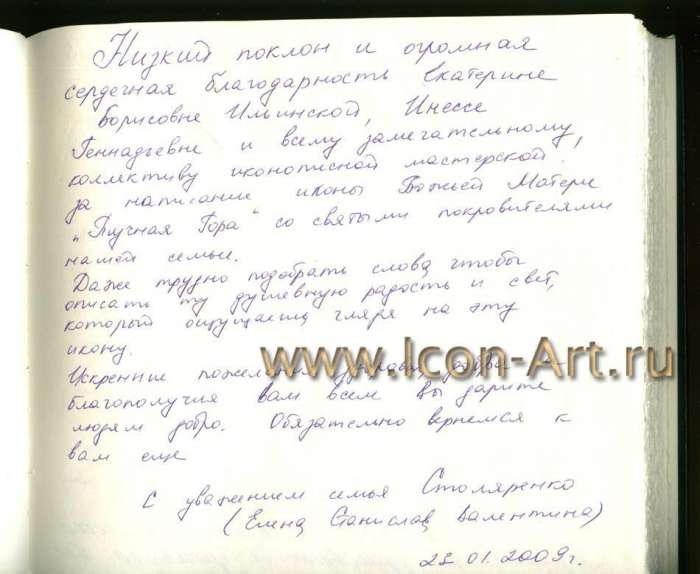 Низкий поклон и огромная
сердечная благодарность Екатерине
Борисовне Ильинской, Инессе
Геннадьевне и всему замечательному,
коллективу иконописной мастерской
за написание иконы Божьей Матери
„Тучная Гора“ со святыми покровителями
нашей семьи.
Даже трудно подобрать слова чтобы
описать ту душевную радость и свет,
который ощущаешь глядя на эту
икону.
www.Icon-Art.ru
Искренние добра
благополучия вам всем вы дарите
людям добро. Обязательно вернемся к
вам еще
С уважением семья Столяренко
(Елена Станислав Валентина)
01.2009г.